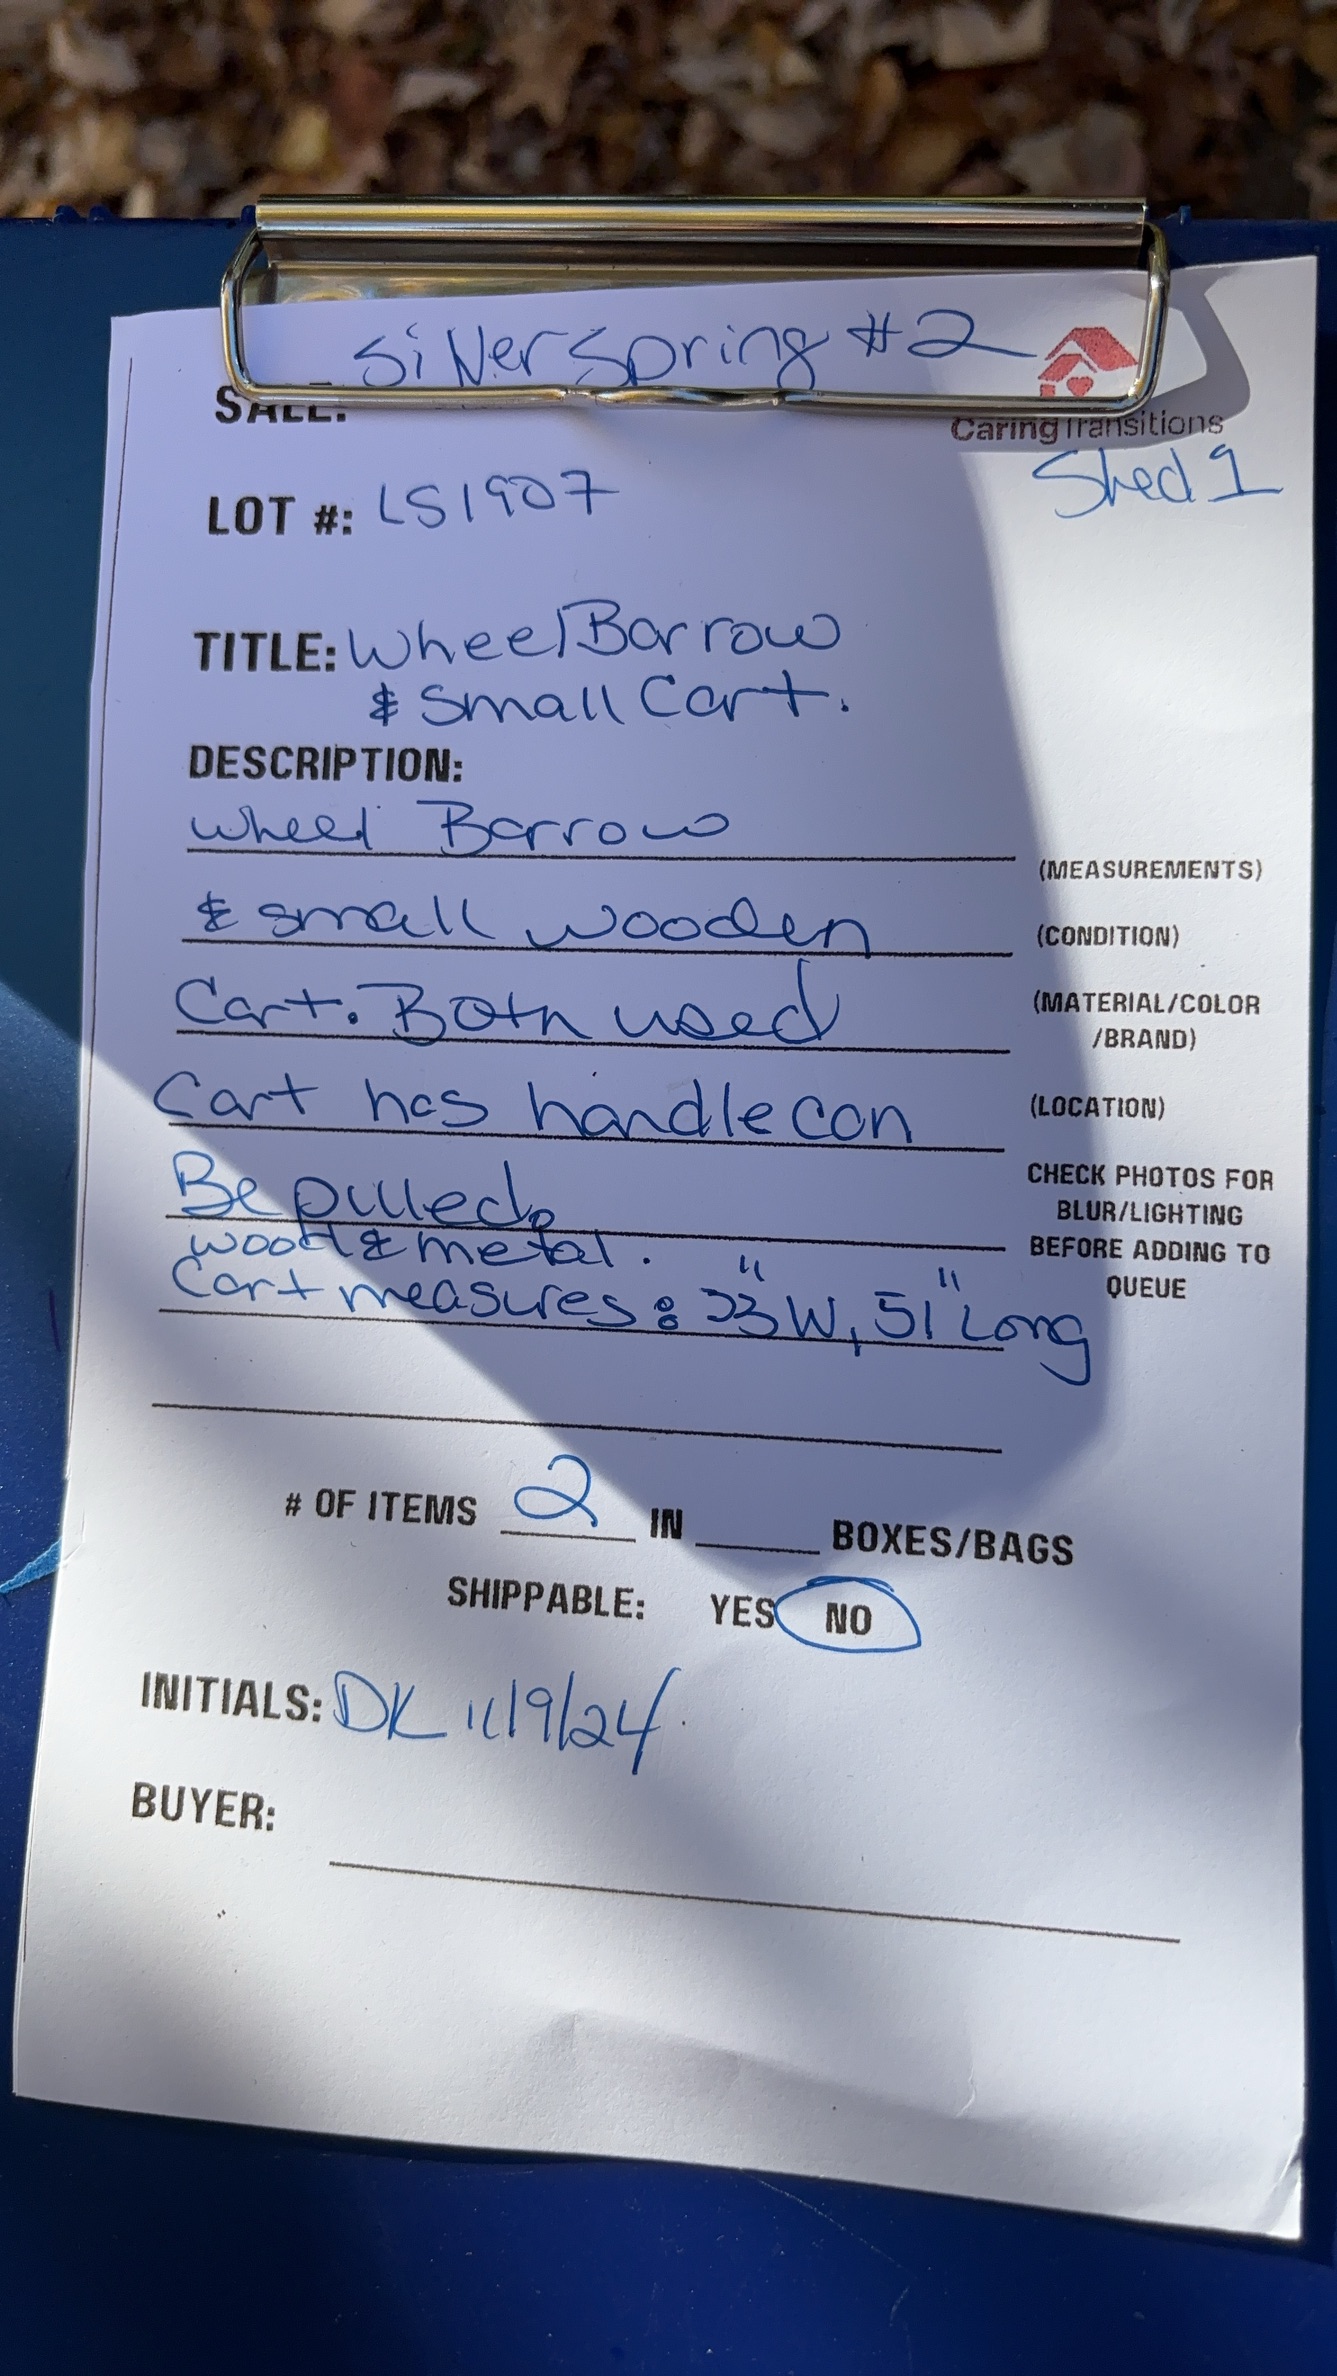 Silver Spring #2
SALE:
CaringTransitions
Shed 1
LOT #: LS1907
TITLE: WheelBarrow
& Small Cart.
DESCRIPTION:
Wheel Barrow
(MEASUREMENTS)
& small wooden
(CONDITION)
Cart. Both used
(MATERIAL/COLOR
/BRAND)
Cart has handle can
(LOCATION)
Be pulled.
CHECK PHOTOS FOR
BLUR/LIGHTING
BEFORE ADDING TO
QUEUE
wood & metal.
Cart measures: 33" W, 51" Long
# OF ITEMS 2 IN ____ BOXES/BAGS
SHIPPABLE: YES NO
INITIALS: DK 11/9/24
BUYER: